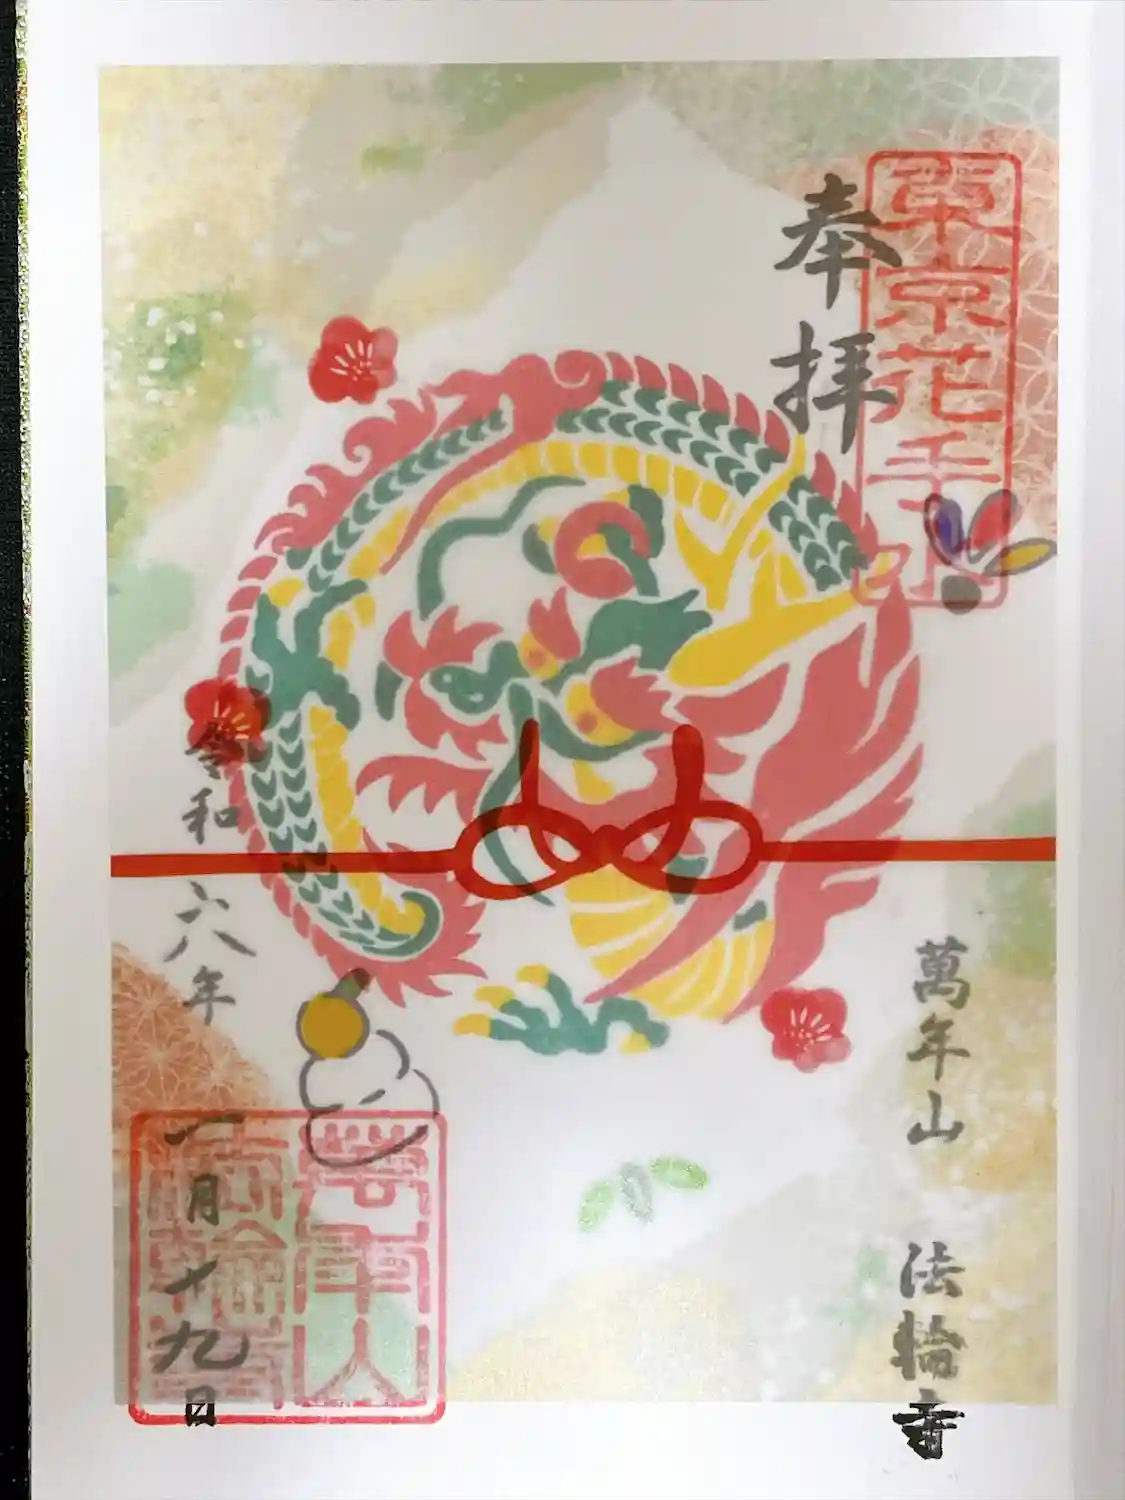 東京花手水
奉拝
萬年山 法輪寺
令和六年 一月十九日
萬年山
法輪寺